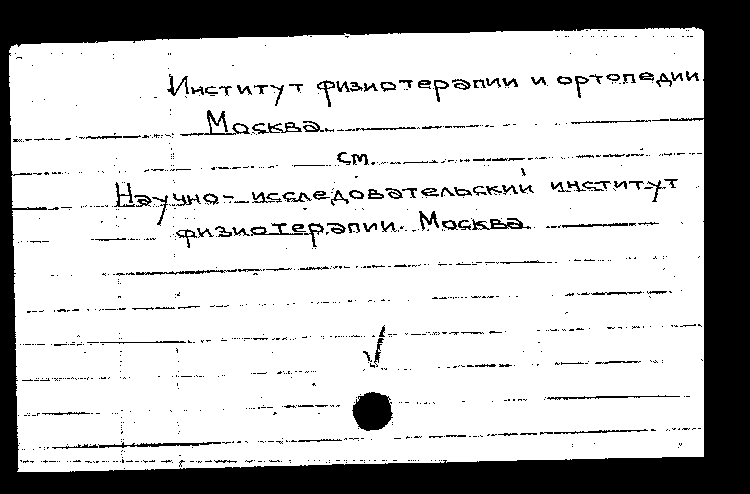 Институт физиотерапии и ортопедии.
Москва.
см.
Научно-исследовательский институт
физиотерапии. Москва.